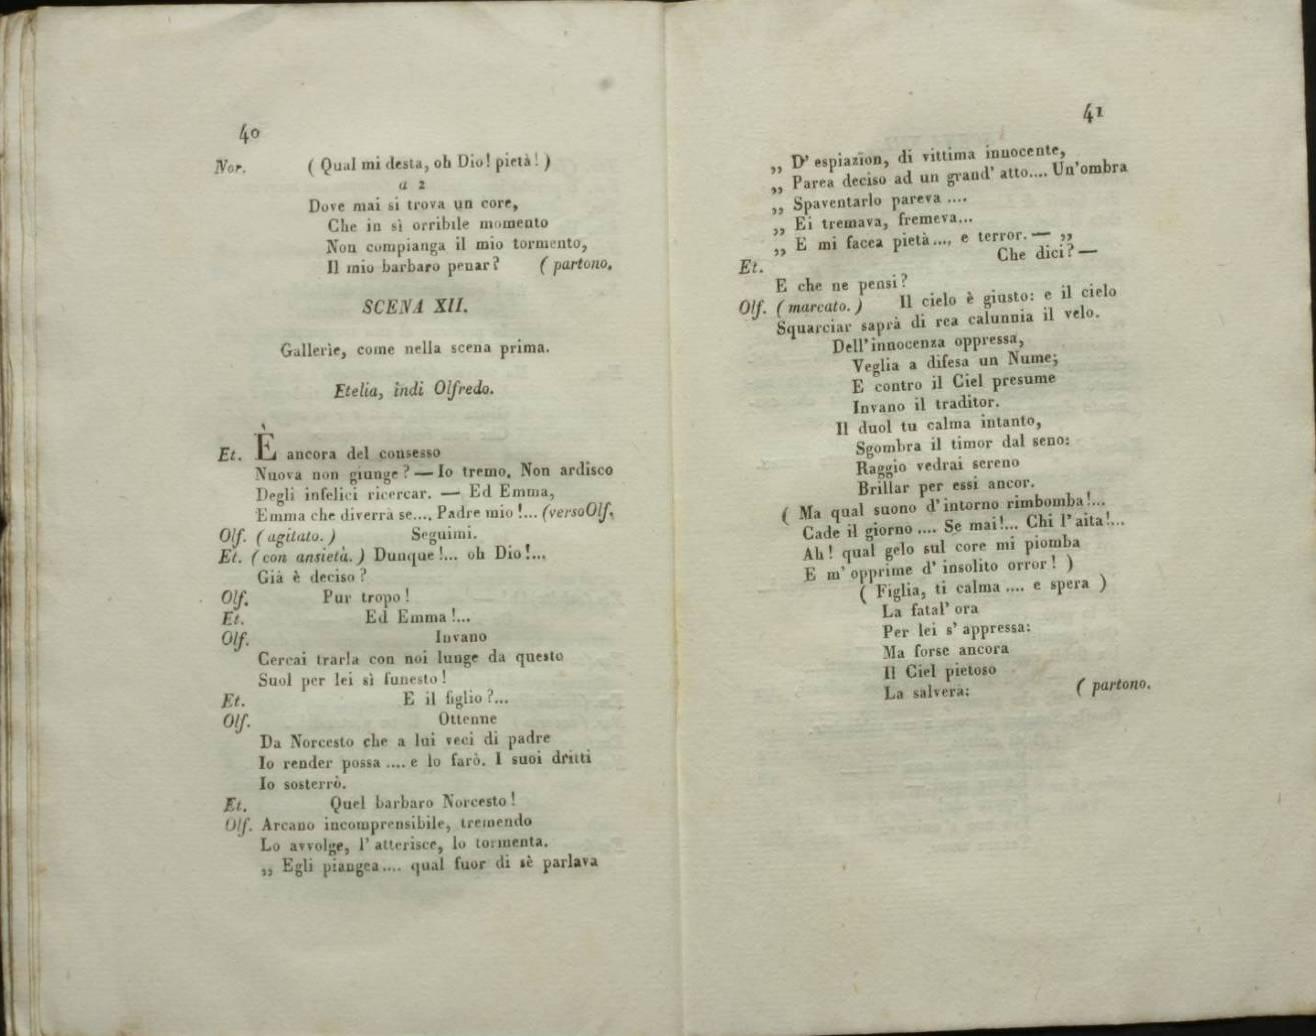 40
Nor. ( Qual mi desta, oh Dio! pietà! )
a 2
Dove mai si trova un core,
Che in sì orribile momento
Non compianga il mio tormento,
Il mio barbaro penar? ( partono.
SCENA XII.
Gallerìe, come nella scena prima.
Etelia, indi Olfredo.
Et. È ancora del consesso
Nuova non giunge? — Io tremo. Non ardisco
Degli infelici ricercar. — Ed Emma,
Emma che diverrà se.... Padre mio!... (verso Olf.
Olf. ( agitato. ) Seguimi.
Et. ( con ansietà. ) Dunque!... oh Dio!...
Già è deciso?
Olf. Pur tropo!
Et. Ed Emma!...
Olf. Invano
Cercai trarla con noi lunge da questo
Suol per lei sì funesto!
Et. E il figlio?...
Olf. Ottenne
Da Norcesto che a lui veci di padre
Io render possa .... e lo farò. I suoi dritti
Io sosterrò.
Et. Quel barbaro Norcesto!
Olf. Arcano incomprensibile, tremendo
Lo avvolge, l' atterisce, lo tormenta.
,, Egli piangea.... qual fuor di sè parlava
41
,, D' espiazion, di vittima innocente,
,, Parea deciso ad un grand' atto.... Un'ombra
,, Spaventarlo pareva ....
,, Ei tremava, fremeva...
,, E mi facea pietà..., e terror. — ,,
Et. Che dici? —
E che ne pensi?
Olf. ( marcato. ) Il cielo è giusto: e il cielo
Squarciar saprà di rea calunnia il velo.
Dell'innocenza oppressa,
Veglia a difesa un Nume;
E contro il Ciel presume
Invano il traditor.
Il duol tu calma intanto,
Sgombra il timor dal seno:
Raggio vedrai sereno
Brillar per essi ancor.
( Ma qual suono d'intorno rimbomba!...
Cade il giorno .... Se mai!... Chi l'aita!...
Ah! qual gelo sul core mi piomba
E m' opprime d' insolito orror! )
( Figlia, ti calma .... e spera )
La fatal' ora
Per lei s' appressa:
Ma forse ancora
Il Ciel pietoso
La salverà: ( partono.